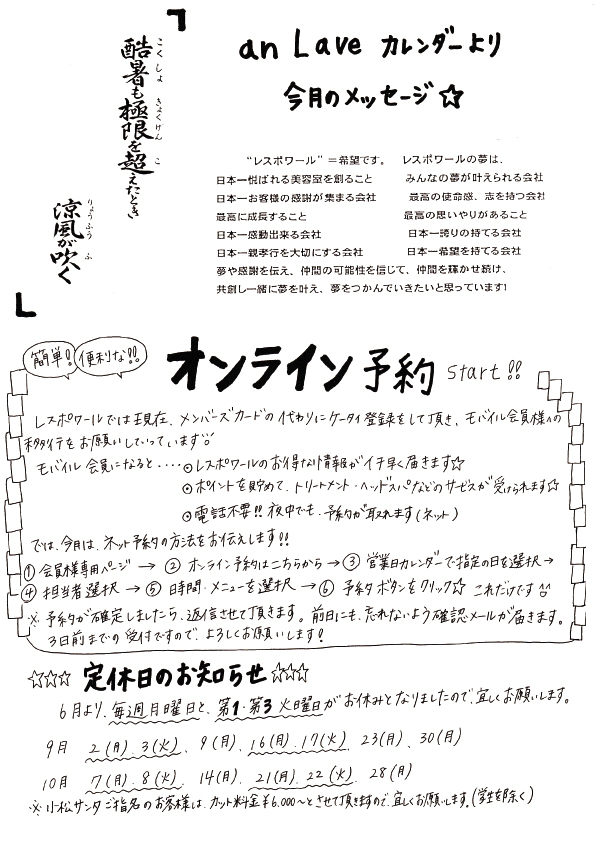 an Lave カレンダーより
今月のメッセージ☆
「酷暑も極限を超えたとき
こくしょ きょくげん こ
涼風が吹く」
りょうふう ふ
“レスポワール”＝希望です。 レスポワールの夢は、
日本一悦ばれる美容室を創ること みんなの夢が叶えられる会社
日本一お客様の感謝が集まる会社 最高の使命感、志を持つ会社
最高に成長すること 最高の思いやりがあること
日本一感動出来る会社 日本一誇りの持てる会社
日本一親孝行を大切にする会社 日本一希望を持てる会社
夢や感謝を伝え、仲間の可能性を信じて、仲間を輝かせ続け、
共創し一緒に夢を叶え、夢をつかんでいきたいと思っています!
簡単! 便利な!!
オンライン予約 start!!
レスポワールでは現在、メンバーズカードの代わりにケータイ登録をして頂き、モバイル会員様への
移行をお願いしていっています
モバイル会員になると・・・・ ⊙レスポワールのお得な情報がイチ早く届きます☆
⊙ポイントを貯めて、トリートメント・ヘッドスパなどのサービスが受けられます☆
⊙電話不要!! 夜中でも、予約が取れます(ネット)
では、今月は、ネット予約の方法をお伝えします!!
①会員様専用ページ → ② オンライン予約はこちらから → ③ 営業日カレンダーで指定の日を選択 →
④ 担当者選択 → ⑤ 日時間・メニューを選択 → ⑥ 予約ボタンをクリック☆ これだけです^^
※ 予約が確定しましたら、返信させて頂きます。前日にも、忘れないよう確認メールが届きます。
3日前までの受付ですので、よろしくお願いします!
☆☆☆ 定休日のお知らせ ☆☆☆
6月より、毎週月曜日と、第1・第3火曜日がお休みとなりましたので、宜しくお願いします。
9月 2(月)、3(火)、9(月)、16(月)、17(火)、23(月)、30(月)
10月 7(月)、8(火)、14(月)、21(月)、22(火)、28(月)
※小松サンタご指名のお客様は、カット料金¥6,000〜とさせて頂きますので、宜しくお願いします。(学生を除く)